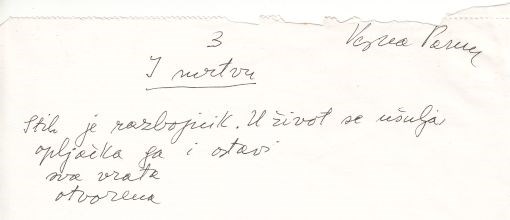 3
Vesna Parun
I mrtvu
Stih je razbojnik. U život se ušulja
opljačka ga i ostavi
sva vrata
otvorena